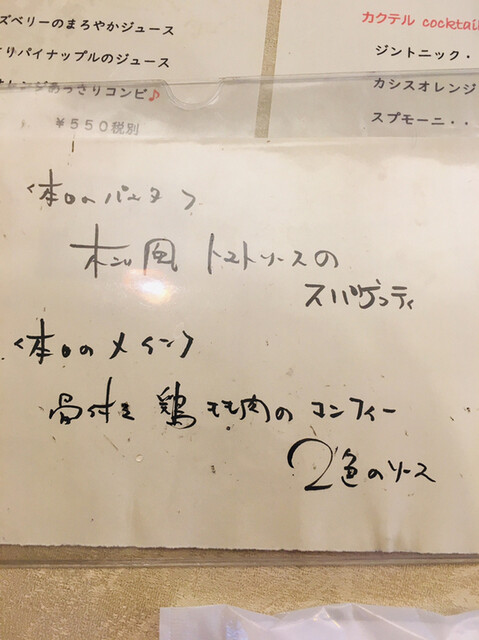 ズベリーのまろやかジュース
さりパイナップルのジュース
オレンジあっさりコンビ♪
¥550税別
カクテル cocktail
ジントニック・
カシスオレンジ
スプモーニ・・
〈本日のパスタ〉
木こり風 トマトソースの
スパゲッティ
〈本日のメイン〉
骨付き 鶏もも肉のコンフィー
2色のソース